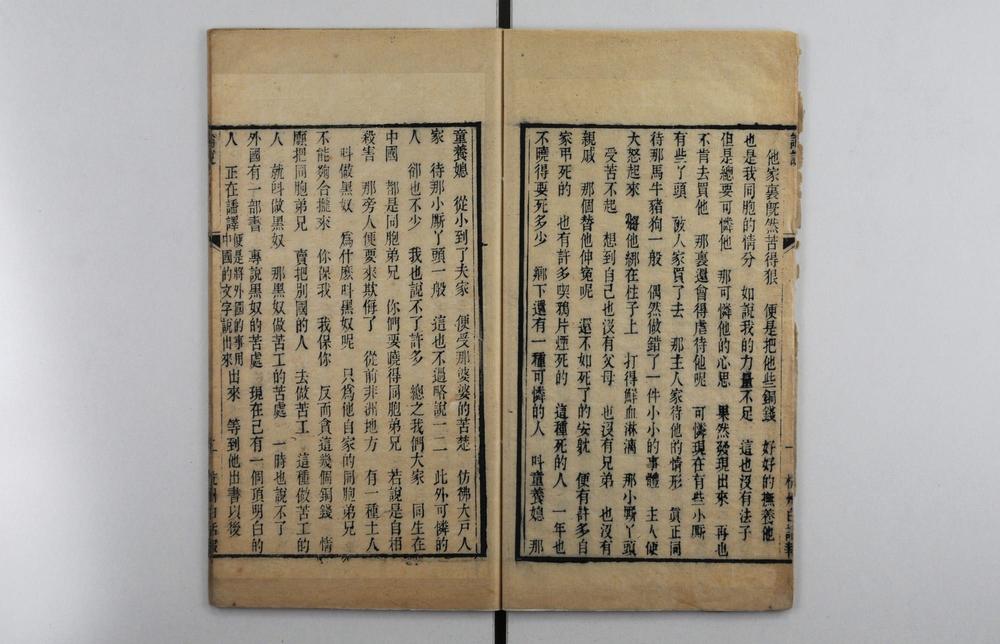 他家裏旣然苦得狠　便是把他些銅錢　好好的撫養他
也是我同胞的情分　如說我的力量不足　這也沒有法子
但是總要可憐他　那可憐他的心思　果然發現出來　再也
不肯去買他　那裏還會得虐待他呢　可憐現在有些小厮
有些丫頭　敀人家買了去　那主人家待他的情形　眞正同
待那馬牛豬狗一般　偶然做錯了一件小小的事體　主人便
大怒起來　將他綁在柱子上　打得鮮血淋漓　那小厮丫頭
受苦不起　想到自己也沒有父母　也沒有兄弟　也沒有
親戚　那個替他伸冤呢　還不如死了的安躭　便有許多自
家弔死的　也有許多喫鴉片煙死的　這種死的人　一年也
不曉得要死多少　鄕下還有一種可憐的人　呌童養媳　那
杭州白話報
童養媳　從小到了夫家　便受那婆婆的苦楚　仿彿大戶人
家　待那小厮丫頭一般　這也不過略說一二　此外可憐的
人　卻也不少　我也說不了許多　總之我們大家　同生在
中國　都是同胞弟兄　你們要曉得同胞弟兄　若說是自相
殺害　那旁人便要來欺侮了　從前非洲地方　有一種土人
呌做黑奴　爲什麽呌黑奴呢　只爲他自家的同胞弟兄
不能夠合攏來　你保我　我保你　反而貪這幾個銅錢　情
願把同胞弟兄　賣把別國的人　去做苦工　這種做苦工的
人　就呌做黑奴　那黑奴做苦工的苦處　一時也說不了
外國有一部書　專說黑奴的苦處　現在已有一個頂明白的
人　正在譒譯便是將外國的事用中國的文字說出來出來　等到他出書以後
杭州白話報